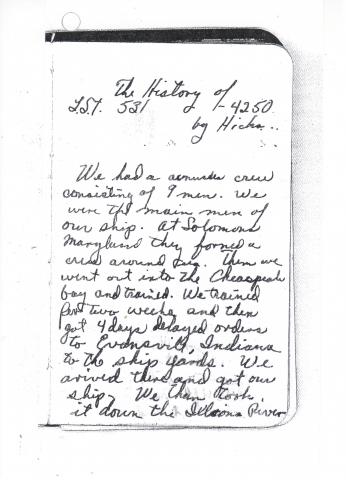 The History of
L.S.T. 531 1-4250
by Hicks..
We had a crew
consisting of 9 men. We
were the main men of
our ship. At Solomons
Maryland they formed a
crew around us. Then we
went out into the Cheaspeak
bay and trained. We trained
for two weeks and then
got 4 days delayed orders
to Evansvill, Indiana
to the ship yards. We
arived there and got our
ship. We then took
it down the Illions River